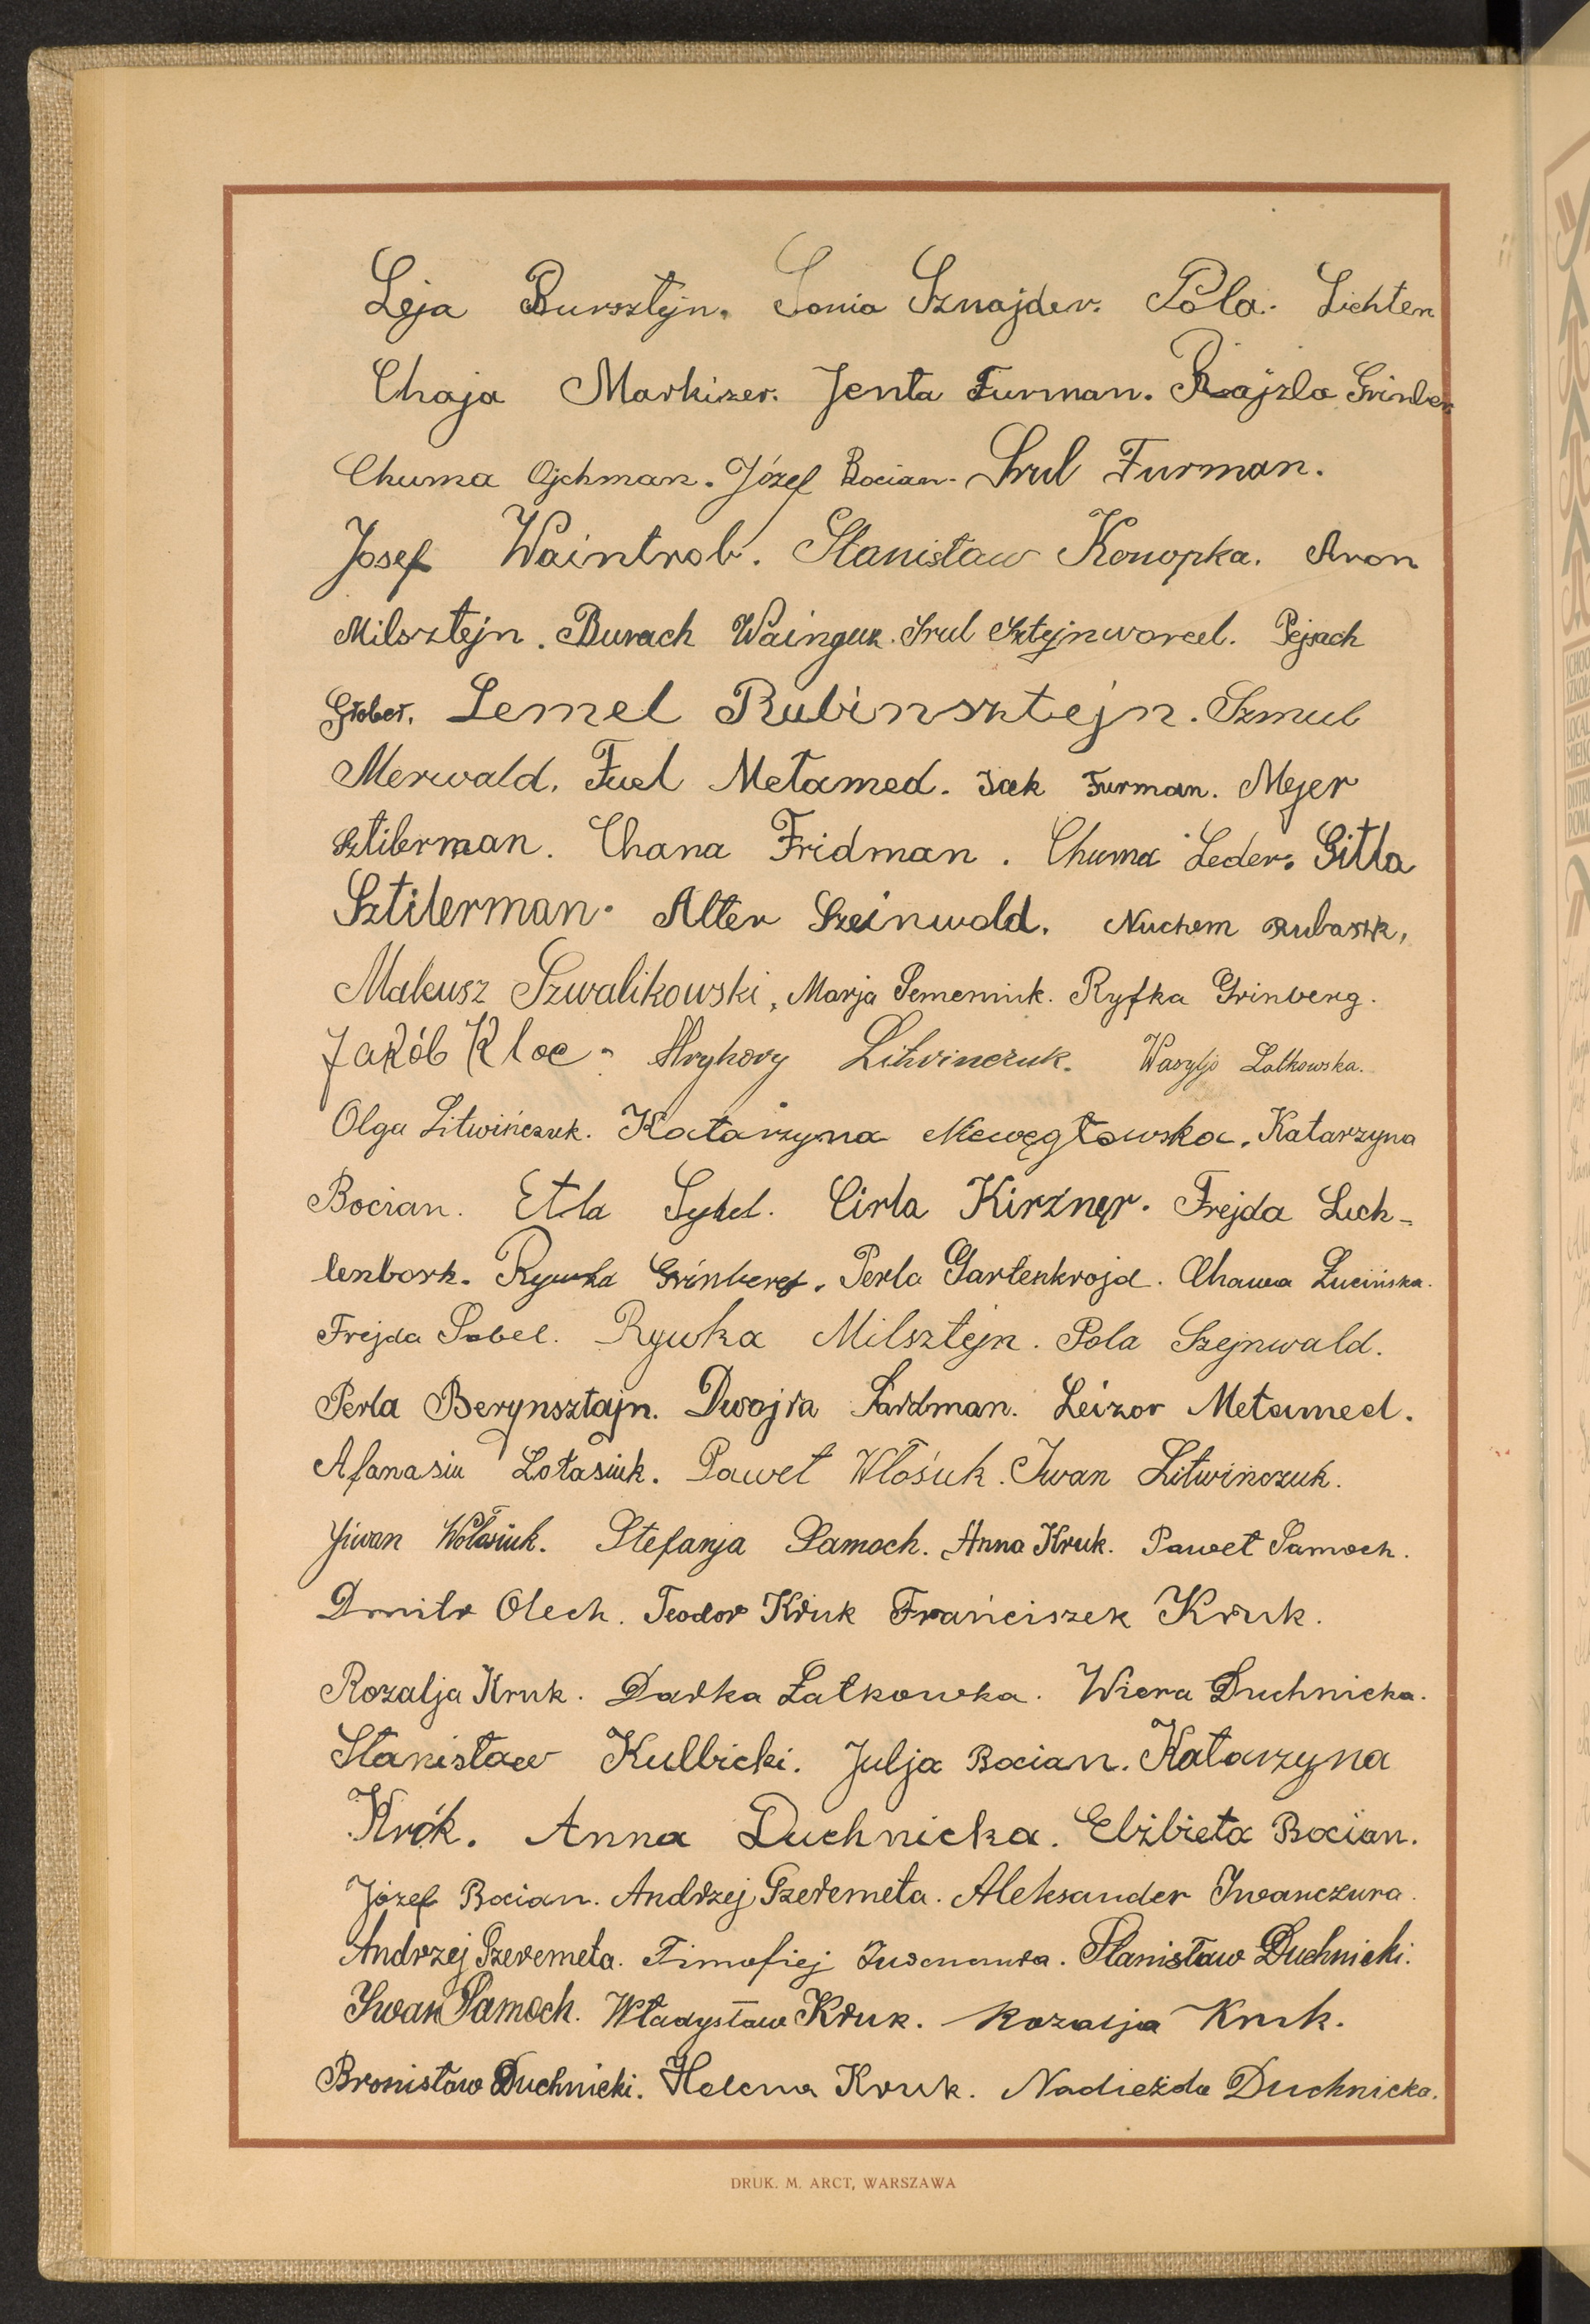 Leja Bursztyn. Sonia Sznajder. Pola. Lichten
Chaja Markizer. Jenta Furman. Rajzla Grinber
Chuma Ojchman. Józef Bocian. Srul Furman.
Josef Waintrob. Stanisław Konopka. Aron
Milsztejn. Burach Waingus. Srul Sztejnworcel. Pejsach
Grober. Lemel Rubinsztejn. Szmul
Merwald. Fuel Metamed. Icek Furman. Mejer
Sztilerman. Chana Fridman. Chuma Leder. Gitla
Sztilerman. Alter Szeinwald. Nuchem
Mateusz Szwalikowski, Marja Semeniuk. Ryfka Grinberg.
Jakób Kloc. Hryhory Litwinczuk. Wasyljo Latkowska.
Olga Litwińczuk. Katarzyna Niewęgłowska. Katarzyna
Bocian. Etla Cirla Kirzner. Frejda Lich-
Rywka Grinberg. Perla Gartenkrojd. Chawa Łucińska.
Frejda Sobel. Rywka Milsztejn. Pola Szejnwald.
Perla Berynsztajn. Dwojra Fardman. Leizor Metamed.
Afanasiu Łotasiuk. Paweł Włośuk. Iwan Litwińczuk.
Jiwan Wołosiuk. Stefanja Samoch. Anna Kruk. Paweł Samoch.
Dmitr Olech. Teodor Kruk Frańciszek Kruk.
Rozalja Kruk. Darka Łatkowka. Wiera Duchnicka.
Stanisław Kulbicki. Julja Bocian. Katarzyna
Król. Anna Duchnicka. Elżbieta Bocian.
Józef Bocian. Andrzej Szeremeta. Aleksander Iwanczura.
Andrzej Szeremeta. Timofiej Stanisław Duchnicki.
Iwan Samoch. Władysław Kruk. Rozalja Kruk.
Bronisław Duchnicki. Helena Kruk. Nadieżda Duchnicka.
DRUK. M. ARCT, WARSZAWA